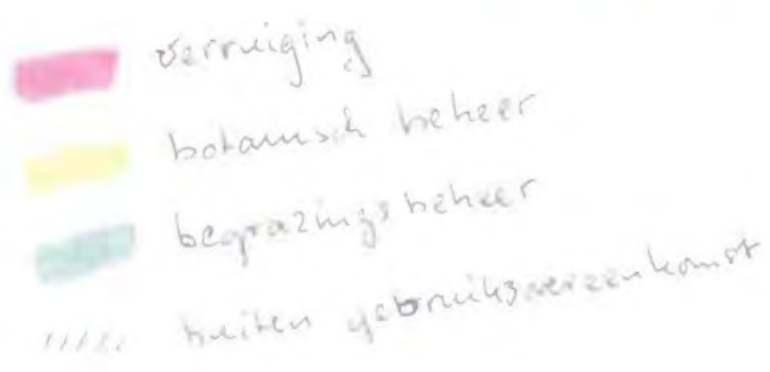 verruiging
botanisch beheer
begrazingsbeheer
buiten gebruiksovereenkomst